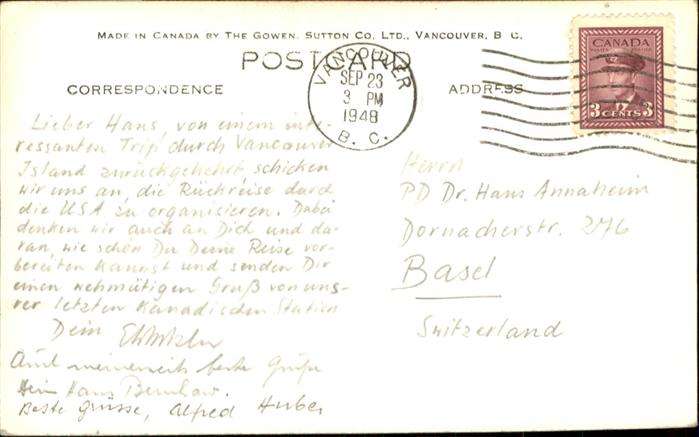 MADE IN CANADA BY THE GOWEN, SUTTON CO., LTD., VANCOUVER, B C.
POSTCARD
CORRESPONDENCE
ADDRESS
VANCOUVER
SEP 23
3 PM
1948
B. C.
CANADA
POSTES POSTAGE
3 CENTS 3
Lieber Hans, von einem inte-
ressanten Trip durch Vancouver
Island zurückgekehrt, schicken
wir uns an, die Rückreise durch
die USA zu organisieren. Dabei
denken wir auch an Dich und da-
ran, wie schön Du Deine Reise vor-
bereiten kannst und senden Dir
einen wehmütigen Gruß von uns-
rer letzten Kanadischen Station
Dein
Auch meinerseits beste Grüße
Dein Hans
Beste Grüsse, Alfred Huber
Herrn
PD Dr. Hans Annaheim
Dornacherstr. 276
Basel
Switzerland